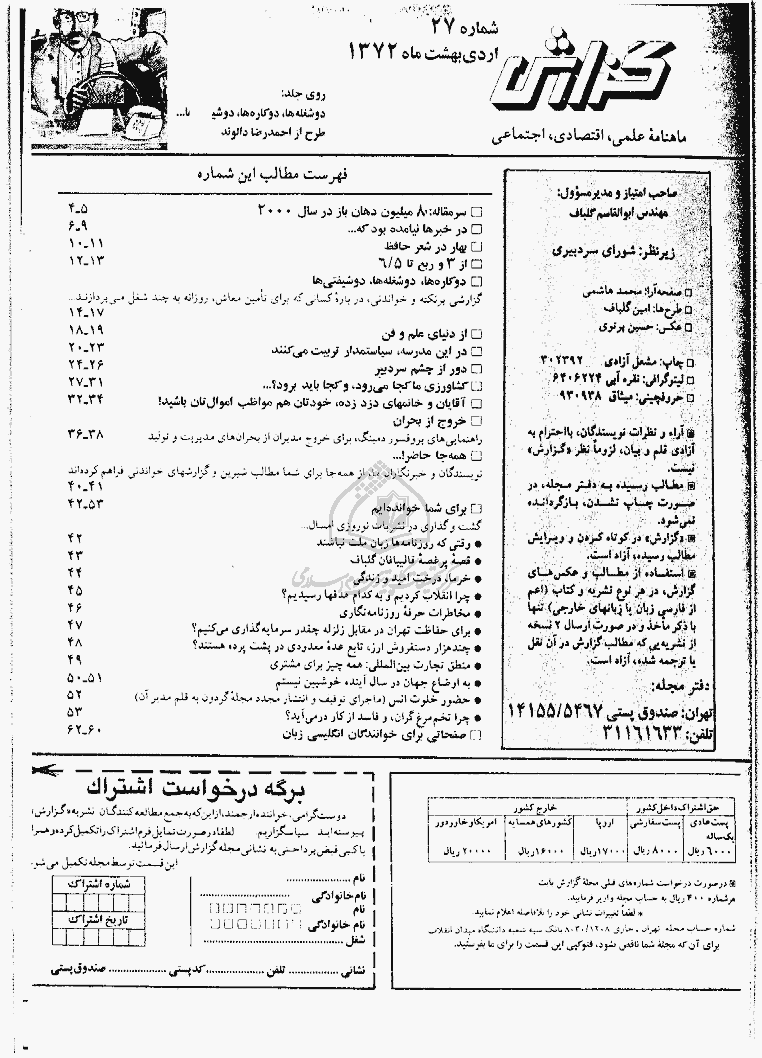 شماره ۲۷
اردی‌بهشت ماه ۱۳۷۲
گزارش
ماهنامهٔ علمی، اقتصادی، اجتماعی
روی جلد:
دوشغله‌ها، دوکاره‌ها، دوشی
طرح از احمدرضا دالوند
صاحب امتیاز و مدیرمسؤول:
مهندس ابوالقاسم گلباف
زیرنظر: شورای سردبیری
□ صفحه‌آرا: محمد هاشمی
□ طرح‌ها: امین گلباف
□ عکس: حسین پرتوی
□ چاپ: مشعل آزادی ۳۰۲۳۹۲
□ لیتوگرافی: نقره آبی ۶۴۰۶۲۲۴
□ حروفچینی: میثاق ۹۳۰۹۳۸
آراء و نظرات نویسندگان، بااحترام به
آزادی قلم و بیان، لزوماً نظر «گزارش»
نیست.
مطالب رسیده به دفتر مجله، در
صورت چاپ نشدن، بازگردانده
نمی‌شود.
«گزارش» در کوتاه کردن و ویرایش
مطالب رسیده، آزاد است.
استفاده از مطالب و عکس‌های
گزارش، در هر نوع نشریه و کتاب (اعم
از فارسی زبان یا زبانهای خارجی) تنها
با ذکر مأخذ و در صورت ارسال ۲ نسخه
از نشریه‌یی که مطالب گزارش در آن نقل
یا ترجمه شده، آزاد است.
دفتر مجله:
تهران: صندوق پستی ۱۴۱۵۵/۵۴۶۷
تلفن: ۳۱۱۶۱۶۳۳
فهرست مطالب این شماره
□ سرمقاله: ۸۰ میلیون دهان باز در سال ۲۰۰۰ ۴ـ۵
□ در خبرها نیامده بود که... ۶ـ۹
□ بهار در شعر حافظ ۱۰ـ۱۱
□ از ۳ و ربع تا ۶/۵ ۱۲ـ۱۳
□ دوکاره‌ها، دوشغله‌ها، دوشیفتی‌ها
گزارشی پرنکته و خواندنی، در بارهٔ کسانی که برای تأمین معاش، روزانه به چند شغل می‌پردازند...
۱۴ـ۱۷
□ از دنیای علم و فن ۱۸ـ۱۹
□ در این مدرسه، سیاستمدار تربیت می‌کنند ۲۰ـ۲۳
□ دور از چشم سردبیر ۲۴ـ۲۶
□ کشاورزی ما کجا می‌رود، و کجا باید برود؟... ۲۷ـ۳۱
□ آقایان و خانمهای دزد زده، خودتان هم مواظب اموال‌تان باشید! ۳۲ـ۳۴
□ خروج از بحران
راهنمایی‌های پروفسور دمینگ، برای خروج مدیران از بحران‌های مدیریت و تولید ۳۶ـ۳۸
□ همه‌جا حاضر!...
نویسندگان و خبرنگاران ما، از همه‌جا برای شما مطالب شیرین و گزارشهای خواندنی فراهم کرده‌اند
۴۰ـ۴۱
□ برای شما خوانده‌ایم ۴۲ـ۵۳
گشت و گذاری در نشریات نوروزی امسال...
● وقتی که روزنامه‌ها زبان ملت نباشند ۴۲
● قصهٔ پرغصهٔ قالیبافان گلباف ۴۳
● خرما، درخت امید و زندگی ۴۴
● چرا انقلاب کردیم و به کدام هدفها رسیدیم؟ ۴۵
● مخاطرات حرفهٔ روزنامه‌نگاری ۴۶
● برای حفاظت تهران در مقابل زلزله چقدر سرمایه‌گذاری می‌کنیم؟ ۴۷
● چندهزار دستفروش ارز، تابع عدهٔ معدودی در پشت پرده هستند؟ ۴۸
● منطق تجارت بین‌المللی: همه چیز برای مشتری ۴۹
● به اوضاع جهان در سال آینده خوشبین نیستم ۵۰ـ۵۱
● حضور خلوت انس (ماجرای توقیف و انتشار مجدد مجلهٔ گردون به قلم مدیر آن) ۵۲
● چرا تخم‌مرغ گران، و فاسد از کار درمی‌آید؟ ۵۳
□ صفحاتی برای خوانندگان انگلیسی زبان ۶۰ـ۶۲
حق اشتراک داخل کشور خارج کشور
پست عادی پست سفارشی اروپا کشورهای همسایه امریکا و خاور دور
یکساله
۶۰۰۰ ریال ۸۰۰۰ ریال ۱۷۰۰۰ ریال ۱۶۰۰۰ ریال ۲۰۰۰۰ ریال
درصورت درخواست شماره‌های قبلی مجلهٔ گزارش بابت
هر شماره ۴۰۰ ریال به حساب مجله واریز فرمایید.
* لطفاً تغییرات نشانی خود را بلافاصله اعلام نمایید
شماره حساب مجله تهران ـ جاری ۸۰۳۰/۱۲۰۸ بانک سپه شعبه دانشگاه میدان انقلاب
برای آن که مجلهٔ شما ناقص نشود، فتوکپی این قسمت را برای ما بفرستید.
برگه درخواست اشتراک
دوست گرامی، خوانندهٔ ارجمند، از این که به جمع مطالعه‌کنندگان نشریه «گزارش»
پیوسته‌اید سپاسگزاریم لطفاً درصورت تمایل فرم اشتراک را تکمیل کرده و همراه
با کپی قبض پرداختی به نشانی مجله گزارش ارسال فرمائید.
این قسمت توسط مجله تکمیل می‌شود
شماره اشتراک
تاریخ اشتراک
نام
نام خانوادگی
نام
نام خانوادگی
شغل
نشانی ........ تلفن ........ کدپستی ........ صندوق پستی